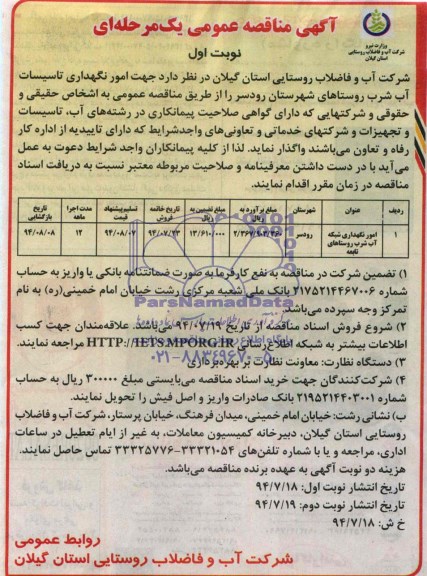 وزارت نیرو
شرکت آب و فاضلاب روستایی
استان گیلان
آگهی مناقصه عمومی یک‌مرحله‌ای
نوبت اول
شرکت آب و فاضلاب روستایی استان گیلان در نظر دارد جهت امور نگهداری تاسیسات
آب شرب روستاهای شهرستان رودسر را از طریق مناقصه عمومی به اشخاص حقیقی و
حقوقی و شرکتهایی که دارای گواهی صلاحیت پیمانکاری در رشته‌های آب، تاسیسات
و تجهیزات و شرکتهای خدماتی و تعاونی‌های واجدشرایط که دارای تاییدیه از اداره کار
رفاه و تعاون می‌باشند واگذار نماید. لذا از کلیه پیمانکاران واجد شرایط دعوت به عمل
می‌آید با در دست داشتن معرفینامه و صلاحیت مربوطه معتبر نسبت به دریافت اسناد
مناقصه در زمان مقرر اقدام نمایند.
ردیف عنوان شهرستان مبلغ برآورد به ریال مبلغ تضمین به ریال تاریخ خاتمه فروش تسلیم پیشنهاد قیمت مدت اجرا ماهه تاریخ بازگشایی
۱ امور نگهداری شبکه آب شرب روستاهای تابعه رودسر ۱۳/۶۱۰/۰۰۰ ۹۴/۰۷/۲۳ ۹۴/۰۸/۰۷ ۱۲ ۹۴/۰۸/۰۸
۱) تضمین شرکت در مناقصه به نفع کارفرما به صورت ضمانتنامه بانکی یا واریز به حساب
شماره ۲۱۷۵۲۱۴۴۶۷۰۰۶ بانک ملی شعبه مرکزی رشت خیابان امام خمینی(ره) به نام
تمرکز وجه سپرده می‌باشد.
۲) شروع فروش اسناد مناقصه از تاریخ ۹۴/۰۷/۱۹ می‌باشد. علاقه‌مندان جهت کسب
اطلاعات بیشتر به شبکه اطلاع‌رسانی HTTP://IETS.MPORG.IR مراجعه نمایند.
۳) دستگاه نظارت: معاونت نظارت بر بهره‌برداری
۴) شرکت‌کنندگان جهت خرید اسناد مناقصه می‌بایستی مبلغ ۳۰۰۰۰۰ ریال به حساب
شماره ۲۱۹۵۲۱۴۴۰۳۰۰۱ بانک صادرات واریز و اصل فیش را تحویل نمایند.
ب) نشانی رشت: خیابان امام خمینی، میدان فرهنگ، خیابان پرستار، شرکت آب و فاضلاب
روستایی استان گیلان، دبیرخانه کمیسیون معاملات، به غیر از ایام تعطیل در ساعات
اداری، مراجعه و یا با شماره تلفن‌های ۳۳۳۲۱۰۵۴-۳۳۳۲۵۷۷۶ تماس حاصل نمایند.
هزینه دو نوبت آگهی به عهده برنده مناقصه می‌باشد.
تاریخ انتشار نوبت اول: ۹۴/۷/۱۸
تاریخ انتشار نوبت دوم: ۹۴/۷/۱۹
خ ش: ۹۴/۷/۱۸
روابط عمومی
شرکت آب و فاضلاب روستایی استان گیلان
ParsNamadData
۰۲۱-۸۸۳۴۹۶۷۰-۵